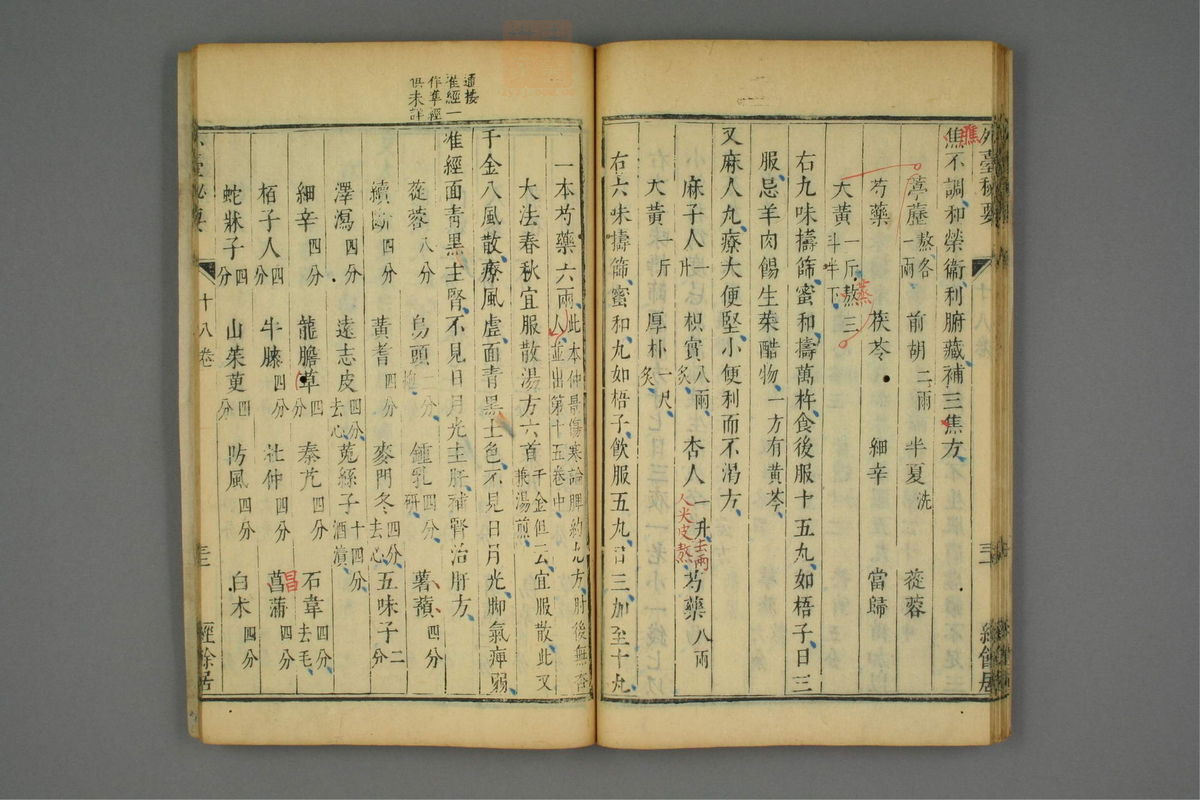 外臺秘要
十八卷
三十二
經餘居
焦不調和榮衞利腑藏補三焦方
膲
葶藶 熬各一兩 前胡 二兩 半夏 洗 蓯蓉
芍藥 茯苓 細辛 當歸
大黃 一斤熬三斗半下
蒸
右九味擣篩蜜和擣萬杵食後服十五丸如梧子日三
服忌羊肉餳生菜醋物一方有黃芩
又麻人丸療大便堅小便利而不渴方
麻子人 一升 枳實 八兩炙 杏人 一升 芍藥 八兩
去兩人尖皮熬
大黃 一斤 厚朴 一尺炙
右六味擣篩蜜和丸如梧子飲服五丸日三加至十丸
一本芍藥六兩 此本仲景傷寒論脾約丸方肘後無杏人並出第十五卷中
大法春秋宜服散湯方六首 千金但云宜服散此又兼湯煎
千金八風散療風虛面青黑土色不見日月光脚氣痺弱
准經面青黑主腎不見日月光主肝補腎治肝方
通按
准經一
作準經
俱未詳
蓯蓉 八分 烏頭 二分炮 鍾乳 四分研 薯蕷 四分
續斷 四分 黃耆 四分 麥門冬 四分去心 五味子 二分
澤瀉 四分 遠志皮 四分去心 菟絲子 十四分酒漬
細辛 四分 龍膽草 四分 秦艽 四分 石韋 四分去毛
栢子人 四分 牛膝 四分 杜仲 四分 菖蒲 四分
昌
蛇牀子 四分 山茱萸 四分 防風 四分 白术 四分
外臺秘要
十八卷
經餘居